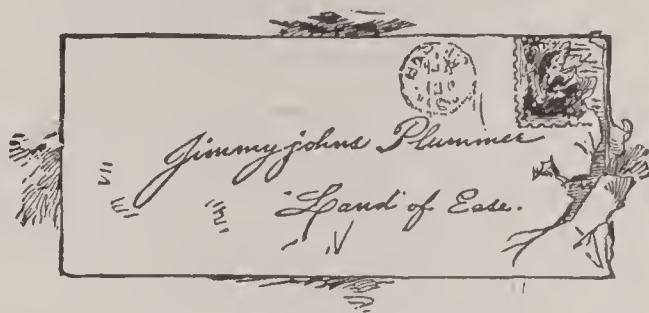 Jimmyjohns Plummer
"Land" of Ease.